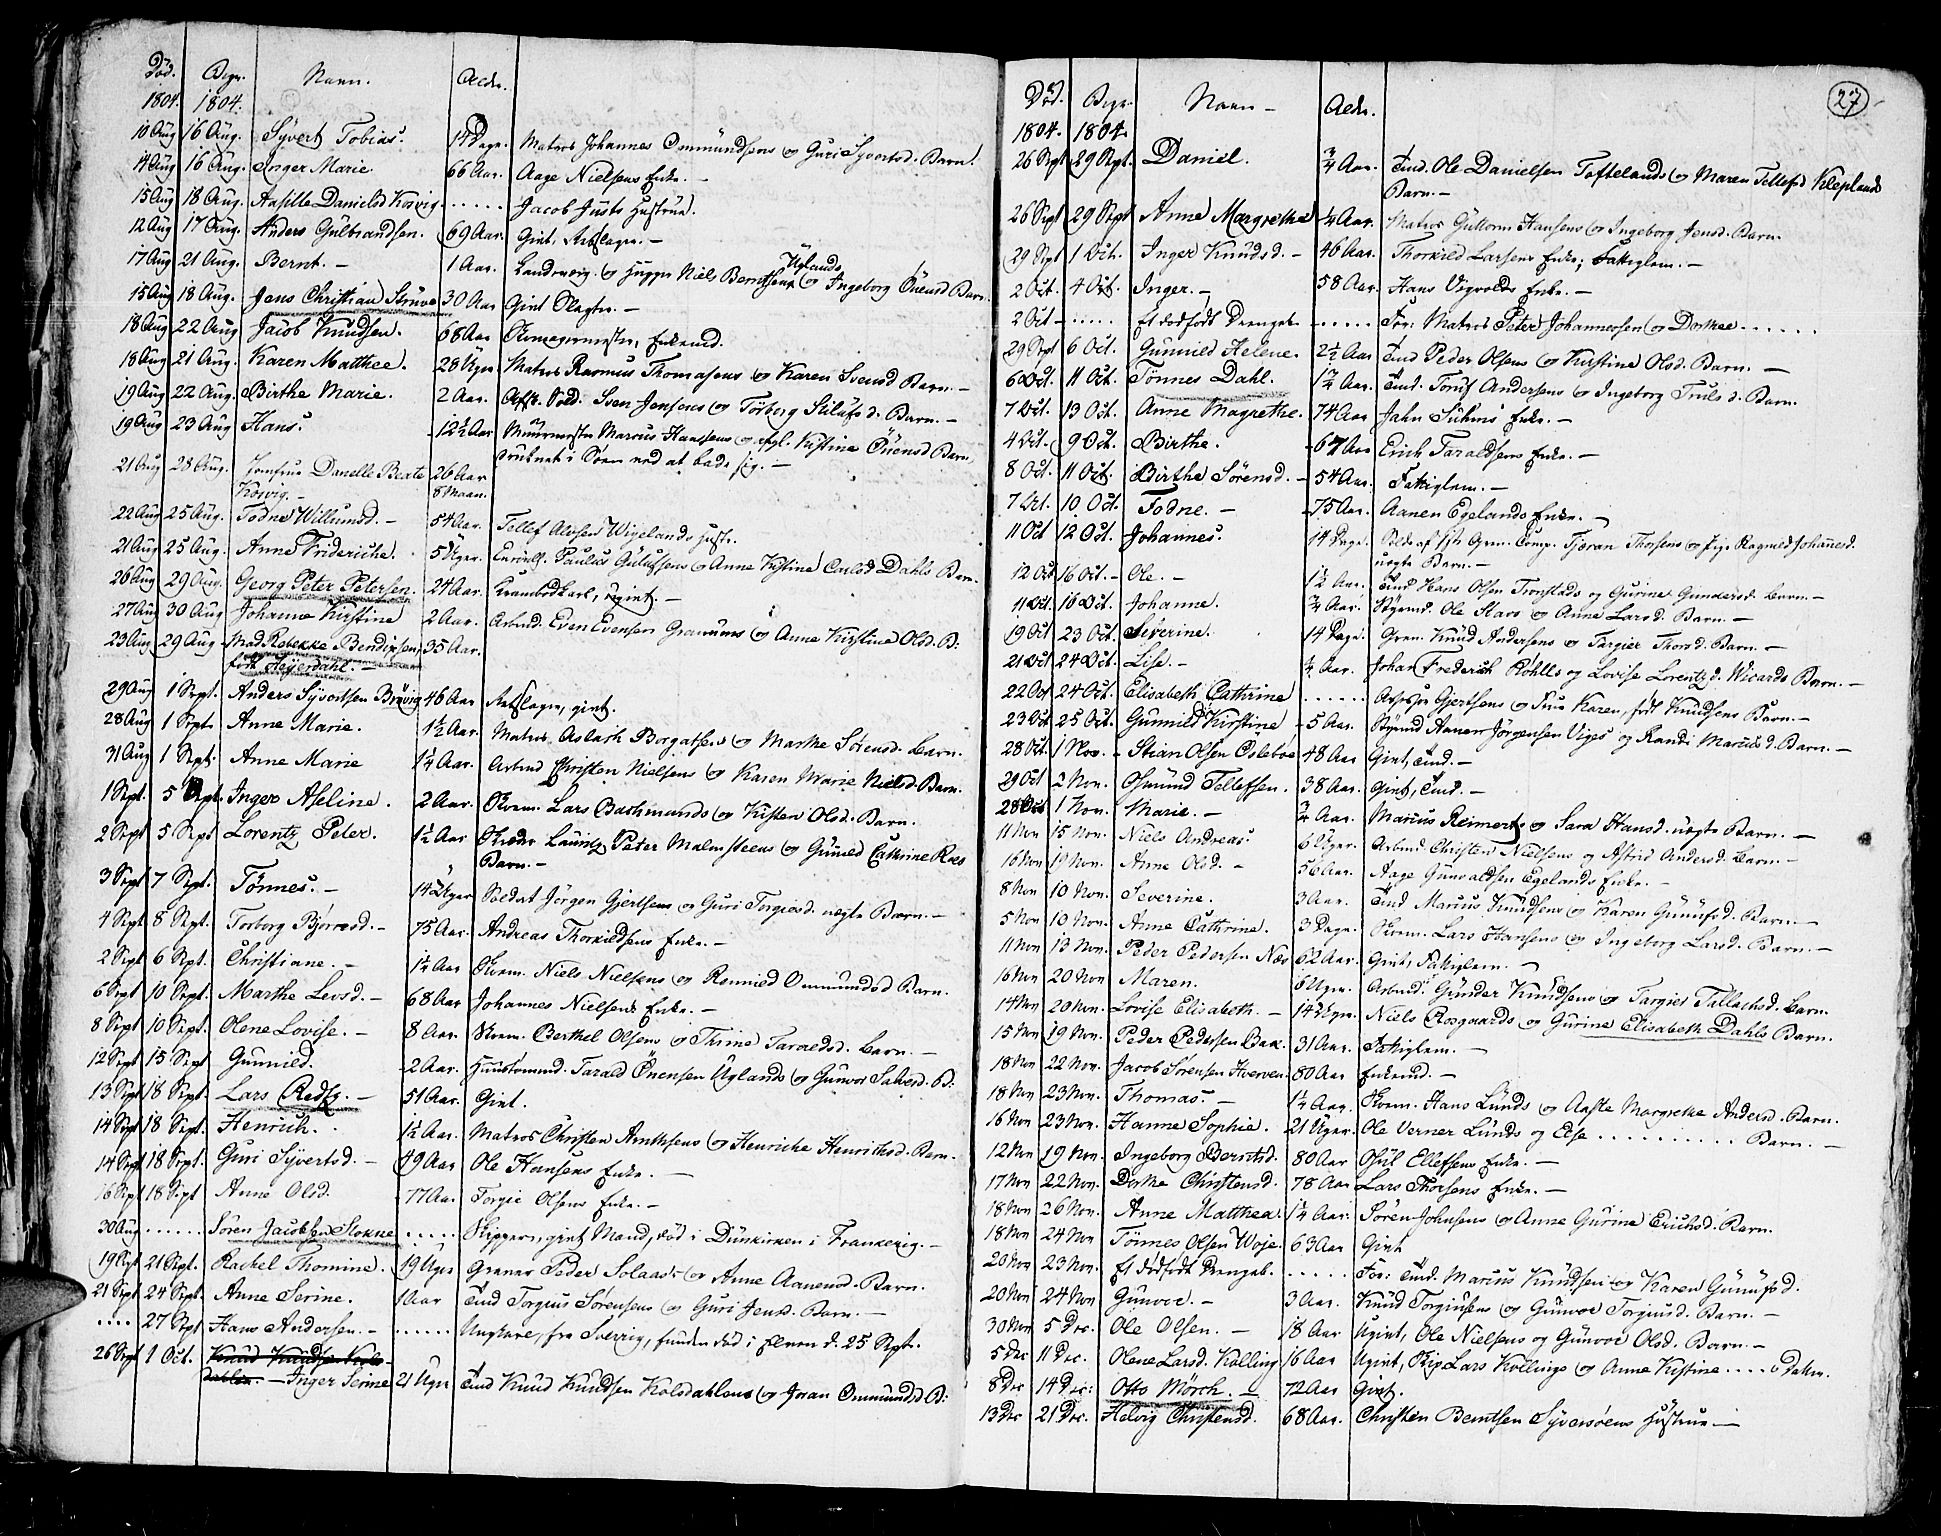 Død. Begr. Navn. Alder.
1804. 1804.
10 Aug 16 Aug. Syvert Tobias. 14 Dage. Matros Johannes Ommundsens og Guri Syvertsd. Barn.
14 Aug 16 Aug. Inger Marie. 66 Aar. Aage Nielsens Enke. –
15 Aug 18 Aug. Aasille Danielsd Korvig ...... Jacob Justs Hustrue.
12 Aug 17 Aug. Anders Gulbrandsen. 69 Aar. Givt, –
17 Aug 21 Aug. Bernt. – 1 Aar. Landværg. og Niels Berntsens Uglands og Ingeborg Önensd Barn.
15 Aug 18 Aug. Jens Christian Strüve 30 Aar Givt –
18 Aug 22 Aug Jacob Knudsen. 68 Aar Enkemd.
18 Aug 21 Aug. Karen Matthea. 28 Uger Matros Rasmus Thomasens og Karen Svensd Barn. –
19 Aug 22 Aug. Birthe Marie. 2 Aar. Sold. Sven Jensens og Torborg Barn. –
19 Aug 23 Aug Hans. 12½ Aar Muurmester Marcus Hanssens og Kistine Önensd Barn,
druknet i Søen ved at bade sig. –
21 Aug 28 Aug. Jomfrue Danelle Beate 26 Aar
Korvig. – 8 Maan.
22 Aug 25 Aug. Todne Willumsd. – 54 Aar. Tellef Alvsen Wigelands Hustr.
21 Aug 25 Aug. Anne Frideriche. 5 Uger. Enroull. Paulus og Anne Kistine Carlsd Dahls Barn.
26 Aug 29 Aug. Georg Peter Petersen. 24 Aar. Krambodkarl, ugivt. –
27 Aug 30 Aug Johanne Kirstine 2 Aar. Arbmd. Even Evensen og Anne Kirstine Olsd. B:
23 Aug 29 Aug Mad. Rebekke Bendixsen, 35 Aar.
født Heyerdahl. –
29 Aug 1 Sept. Anders Syvertsen Brøvig 46 Aar givt.
28 Aug 1 Sept. Anne Marie. 1½ Aar. Matros Aslach Borgatsens og Marthe Sørensd. Barn.
31 Aug 1 Sept. Anne Marie 1¼ Aar. Arbmd Christen Nielsens og Karen Marie Nielsd. Barn.
1 Sept. 5 Sept. Inger Aseline. 2 Aar. Lars Bachmunds og Kisten Olsd. Barn.
2 Sept 5 Sept Lorentz Peter. 1½ Aar Lauritz Peter Malmsteens og Gunild Cathrine Roes
Barn. –
3 Sept 7 Sept. Tønnes. – 14 Uger Soldat Jørgen Gjertsens og Guri Torgiesd. uægte Barn. –
4 Sept 8 Sept. Torborg Bjørresd. – 75 Aar. Andreas Thorkildsens Enke. –
2 Sept 6 Sept. Christiane. – 1¼ Aar Niels Nielsens og Ronnild Ommundsd Barn.
6 Sept 10 Sept. Marthe Levsd. – 68 Aar Johannes Nielsens Enke. –
8 Sept 10 Sept. Olene Lovise. – 8 Aar. Berthel Olsens og Thrine Taraldsd. Barn. –
12 Sept 15 Sept Gunnild. 2 Aar. Huustømmd. Tarald Önensen Uglands og Gunvor Salvesd. B:
13 Sept 18 Sept. Lars Redtz. – 51 Aar. Givt.
14 Sept 18 Sept. Henrich. 1½ Aar. Matros Christen Arnthsens og Henriche Henrichsd. Barn.
14 Sept 18 Sept. Guri Syvertsd. – 49 Aar Ole Hansens Enke. –
16 Sept 18 Sept Anne Olsd. 77 Aar. Torgie Olsens Enke. –
30 Aug ...... Søren Jacobsen Klokne ...... Skipper, givt Mand, død i Dünkirken i Frankerig. –
19 Sept 21 Sept. Rachel Thomine. 19 Uger Peder Solaas's og Anne Aanensd. Barn.
21 Sept 24 Sept. Anne Serine. 1 Aar Tmd Torgius Sørensens og Guri Jensd. Barn. –
.... 27 Sept Hans Andersen. – ...... Ungkarl, fra Sverrig, funden død i Elven d. 25 Sept.
26 Sept 1 Oct. Knud Knudsen Kols-
dahlen. – Inger Serine 21 Uger Tmd Knud Knudsen Kolsdahlens og Joran Ommundsd B:
27
Død. Begr. Navn – Alder.
1804. 1804.
26 Sept 29 Sept. Daniel. ¾ Aar. Tmd. Ole Danielsen Toftelands og Maren Tellefsd Kleplands
Barn. –
26 Sept 29 Sept Anne Margrethe ¼ Aar. Matros Guttorm Hansens og Ingeborg Jensd. Barn.
29 Sept 1 Oct. Inger Knudsd. – 46 Aar. Thorkild Larsens Enke; Fattiglem. –
2 Oct. 4 Oct. Inger. – 58 Aar. Hans Vigvolds Enke. –
2 Oct – ..... Et dødfødt Drengeb. ...... For: Matros Peter Johannessen og Dorthe ......
29 Sept 6 Oct. Gunnild Helene. 2½ Aar Tmd Peder Olsens og Kirstine Olsd. Barn. –
6 Oct. 11 Oct. Tønnes Dahl. 1¾ Aar. Tmd. Andersens og Ingeborg Trulsd. Barn.
7 Oct. 13 Oct. Anne Magrethe. 74 Aar Jahn Suhms Enke. –
4 Oct. 9 Oct. Birthe. 67 Aar Erich Taraldsens Enke. –
8 Oct. 11 Oct. Birthe Sørensd. – 54 Aar. Fattiglem. –
7 Oct. 10 Oct. Todne. – 75 Aar. Aanen Egelands Enke. –
11 Oct 12 Oct. Johannes. 14 Dage. af 1ste Gren. Comp. Tjøran Thorsens og Pige Ragnild Johannesd.
uægte Barn. –
12 Oct 16 Oct. – Ole. – 1½ Aar. Tmd Hans Olsen Tronstads og Gurine Gundersd. Barn. –
11 Oct. 16 Oct. Johanne. ¾ Aar. Ole Haas og Anne Larsd. Barn. –
19 Oct 23 Oct. Severine. 14 Dage. Gren. Knud Andersens og Targier Thorsd. Barn. –
21 Oct 24 Oct. Lise. – ¾ Aar. Johan Frederich Rohlls og Lovise Lorentzd. Wicards Barn. –
22 Oct 24 Oct. Elisabeth Cathrine ...... Gjertsens og Frue Karen, født Knudsens Barn. –
23 Oct 25 Oct. Gunnild Kirstine 5 Aar. Aanen Jørgensen Viges og Randi Marcusd. Barn. –
28 Oct. 1 Nov. – Stian Olsen Osleboe 48 Aar Givt, Tmd. –
29 Oct 2 Nov. Osmund Tellefsen. 38 Aar. Givt, Tmd. –
28 Oct 1 Nov. Marie. – ¾ Aar. Marcus Reimerts og Sara Hansd. uægte Barn. –
11 Nov 15 Nov. Niels Andreas. 6 Uger. Arbmd. Christen Nielsens og Astrid Andersd. Barn. –
16 Nov 19 Nov. Anne Olsd. – 56 Aar. Aage Gunvaldsen Egelands Enke. –
8 Nov 10 Nov. Severine. 3 Aar. Tmd Marcus Knudsens og Karen Gunnufsd. Barn. –
5 Nov 10 Nov. Anne Cathrine. 3 Dage. Lars Hansens og Ingeborg Larsd. Barn. –
11 Nov 13 Nov. Peder Pedersen Næs 62 Aar. Givt, Fattiglem. –
16 Nov 20 Nov Maren. 6 Uger. Arbmd. Gunder Knudsens og Targier Tallachsd. Barn.
14 Nov 20 Nov. Lovise Elisabeth. – 14 Uger. Niels Rosgaards og Gurine Elisabeth Dahls Barn.
15 Nov 19 Nov. Peder Pedersen Bak. 31 Aar. Fattiglem. –
18 Nov 22 Nov. Jacob Sørensen Hverven. 80 Aar Enkemd. –
18 Nov 23 Nov. Thomas. – 1¼ Aar. Hans Lunds og Aaste Margrethe Andersd. Barn.
16 Nov 23 Nov. Hanne Sophie. 21 Uger. Ole Verner Lunds og Else .......... Barn. –
12 Nov 19 Nov. Ingeborg Berntsd. 80 Aar Osul Ellefsens Enke. –
17 Nov 22 Nov. Dorthe Christensd. 78 Aar Lars Thorsens Enke. –
18 Nov 26 Nov. Anne Matthea. 1¼ Aar. Søren Johnsens og Anne Gurine Erichsd. Barn.
18 Nov 24 Nov Tønnes Olsen Woje. 63 Aar Givt
20 Nov 23 Nov. Et dødfødt Drengeb. ...... For: Tmd. Marcus Knudsen og Karen Gunnufsd.
20 Nov 24 Nov Gunvor. – 3 Aar. Knud Torgiusens og Gunvor Torgiusd. Barn. –
30 Nov 5 Dec. Ole Olsen. – 18 Aar Ugivt, Ole Nielsens og Gunvor Olsd. Barn. –
5 Dec 11 Dec. Olene Larsd. Kolling 16 Aar Ugivt, Skip. Lars Kollings og Anne Kistine .... Datter.
8 Dec 14 Dec: Otto Mörch. – 72 Aar Givt.
13 Dec 21 Dec. Helvig Christensd. 68 Aar. Christen Berntsen Hustrue –